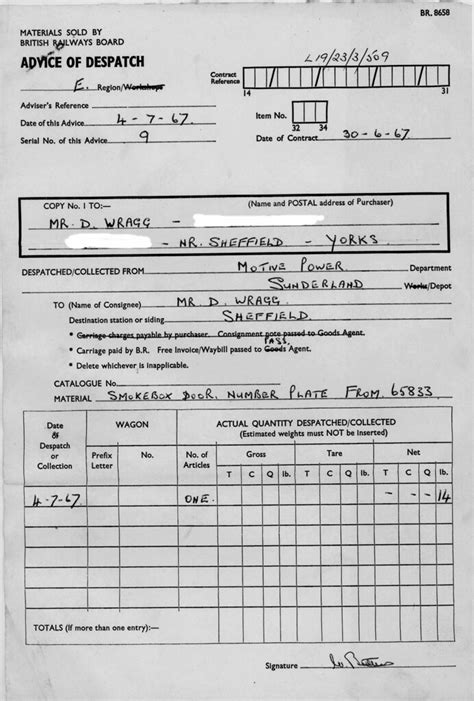 BR. 8658
MATERIALS SOLD BY
BRITISH RAILWAYS BOARD
ADVICE OF DESPATCH
L19/23/3/509
E. Region/Workshops
Contract
Reference
14 31
Adviser's Reference
Date of this Advice 4-7-67
Item No.
32 34
Serial No. of this Advice 9
Date of Contract 30-6-67
COPY No. 1 TO:— (Name and POSTAL address of Purchaser)
MR. D. WRAGG -
- NR. SHEFFIELD - YORKS.
DESPATCHED/COLLECTED FROM MOTIVE POWER Department
SUNDERLAND Works/Depot
TO (Name of Consignee) MR D. WRAGG.
Destination station or siding SHEFFIELD.
* Carriage charges payable by purchaser. Consignment note passed to Goods Agent.
PASS.
* Carriage paid by B.R. Free Invoice/Waybill passed to Goods Agent.
* Delete whichever is inapplicable.
CATALOGUE No.
MATERIAL SMOKEBOX DOOR. NUMBER PLATE FROM 65833
Date
of
Despatch
or
Collection
WAGON
Prefix
Letter
No.
ACTUAL QUANTITY DESPATCHED/COLLECTED
(Estimated weights must NOT be inserted)
No. of
Articles
Gross Tare Net
T C Q lb. T C Q lb. T C Q lb.
4-7-67 ONE. - - - 14
TOTALS (If more than one entry):—
Signature